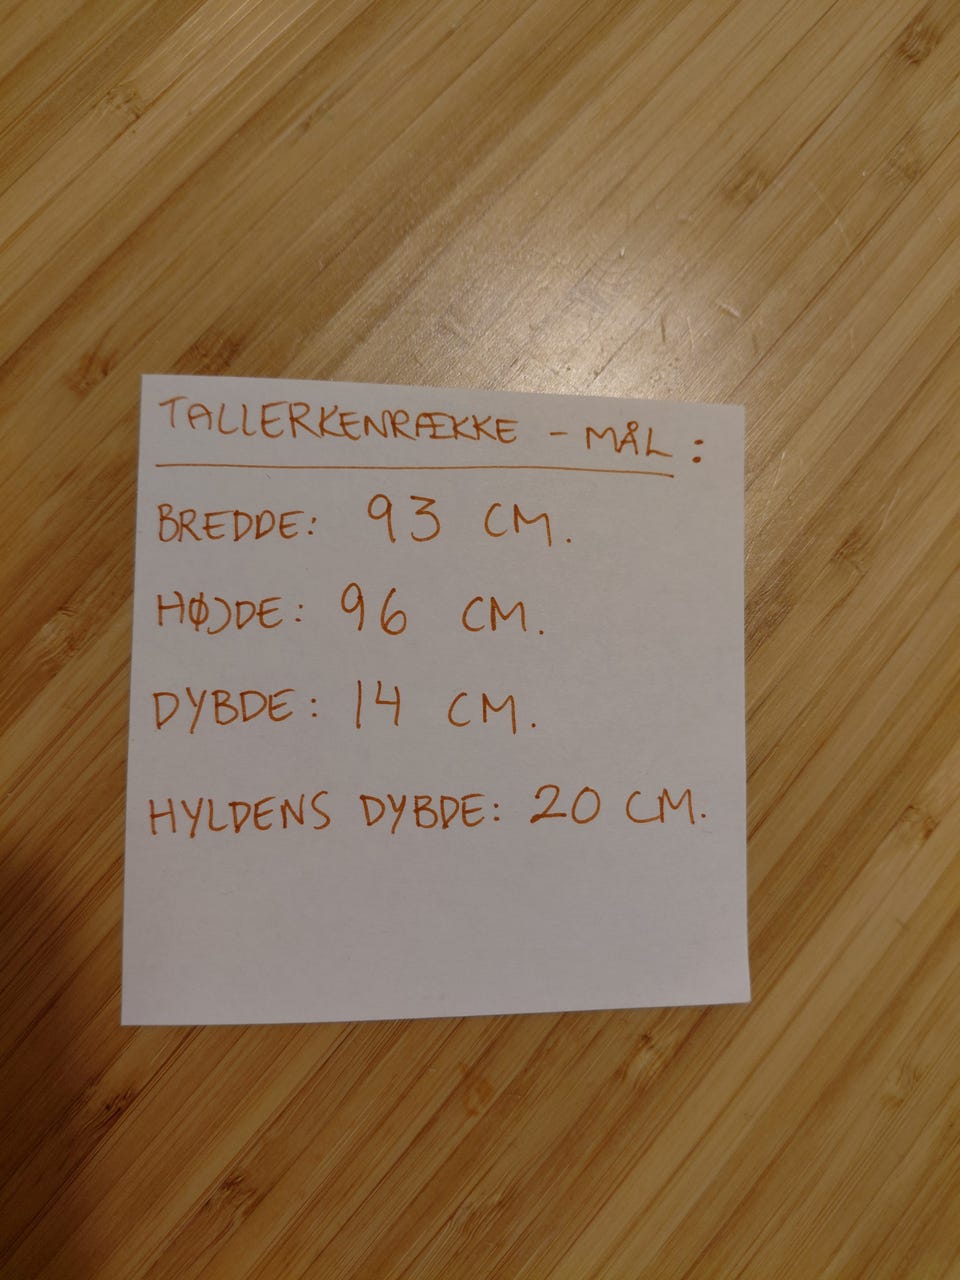 TALLERKENRÆKKE - MÅL :
BREDDE: 93 CM.
HØJDE: 96 CM.
DYBDE: 14 CM.
HYLDENS DYBDE: 20 CM.